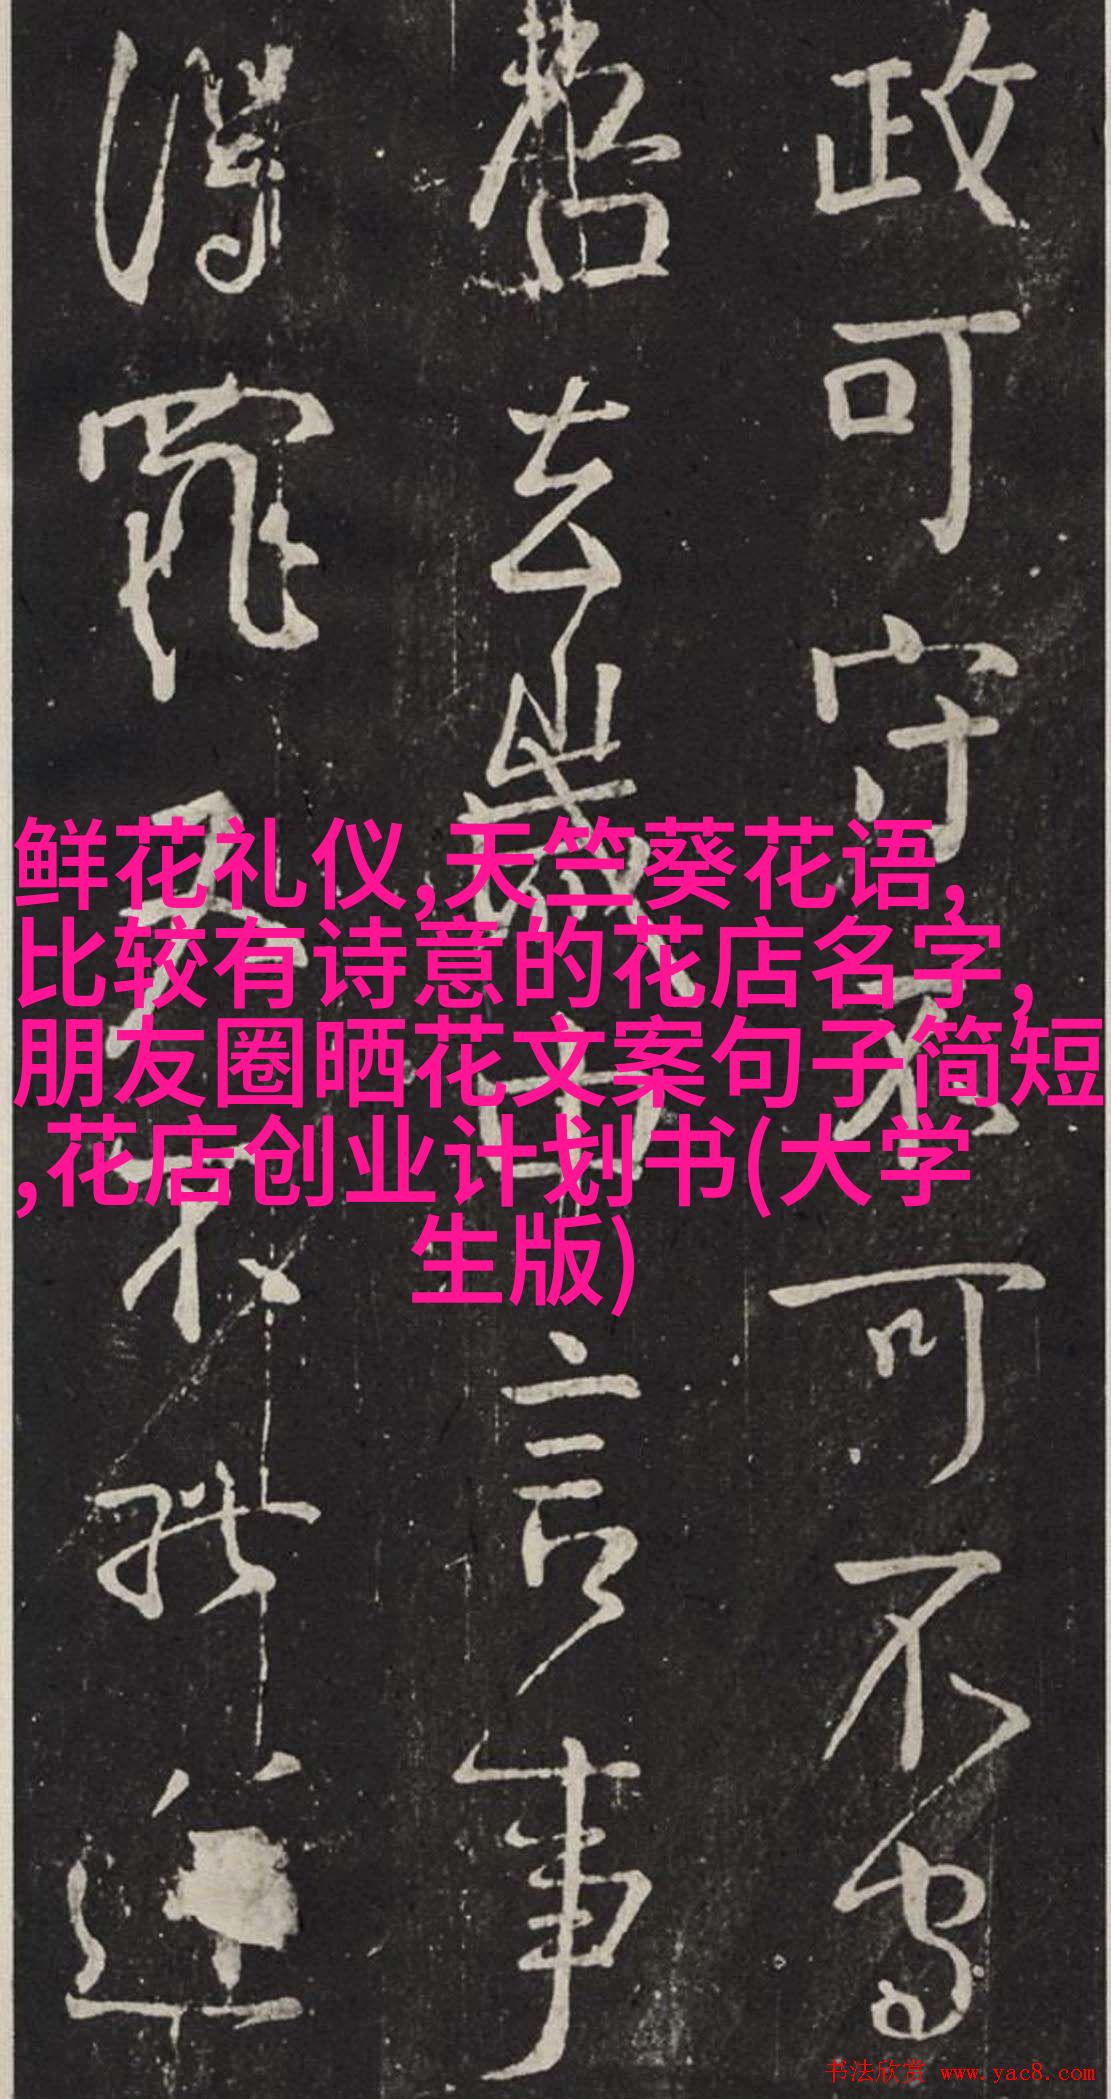 政可守不可不守
哲去歲中言事
得罪又不
鲜花礼仪,天竺葵花语,
比较有诗意的花店名字,
朋友圈晒花文案句子简短
,花店创业计划书(大学
生版)
书法欣赏 www.yac8.com